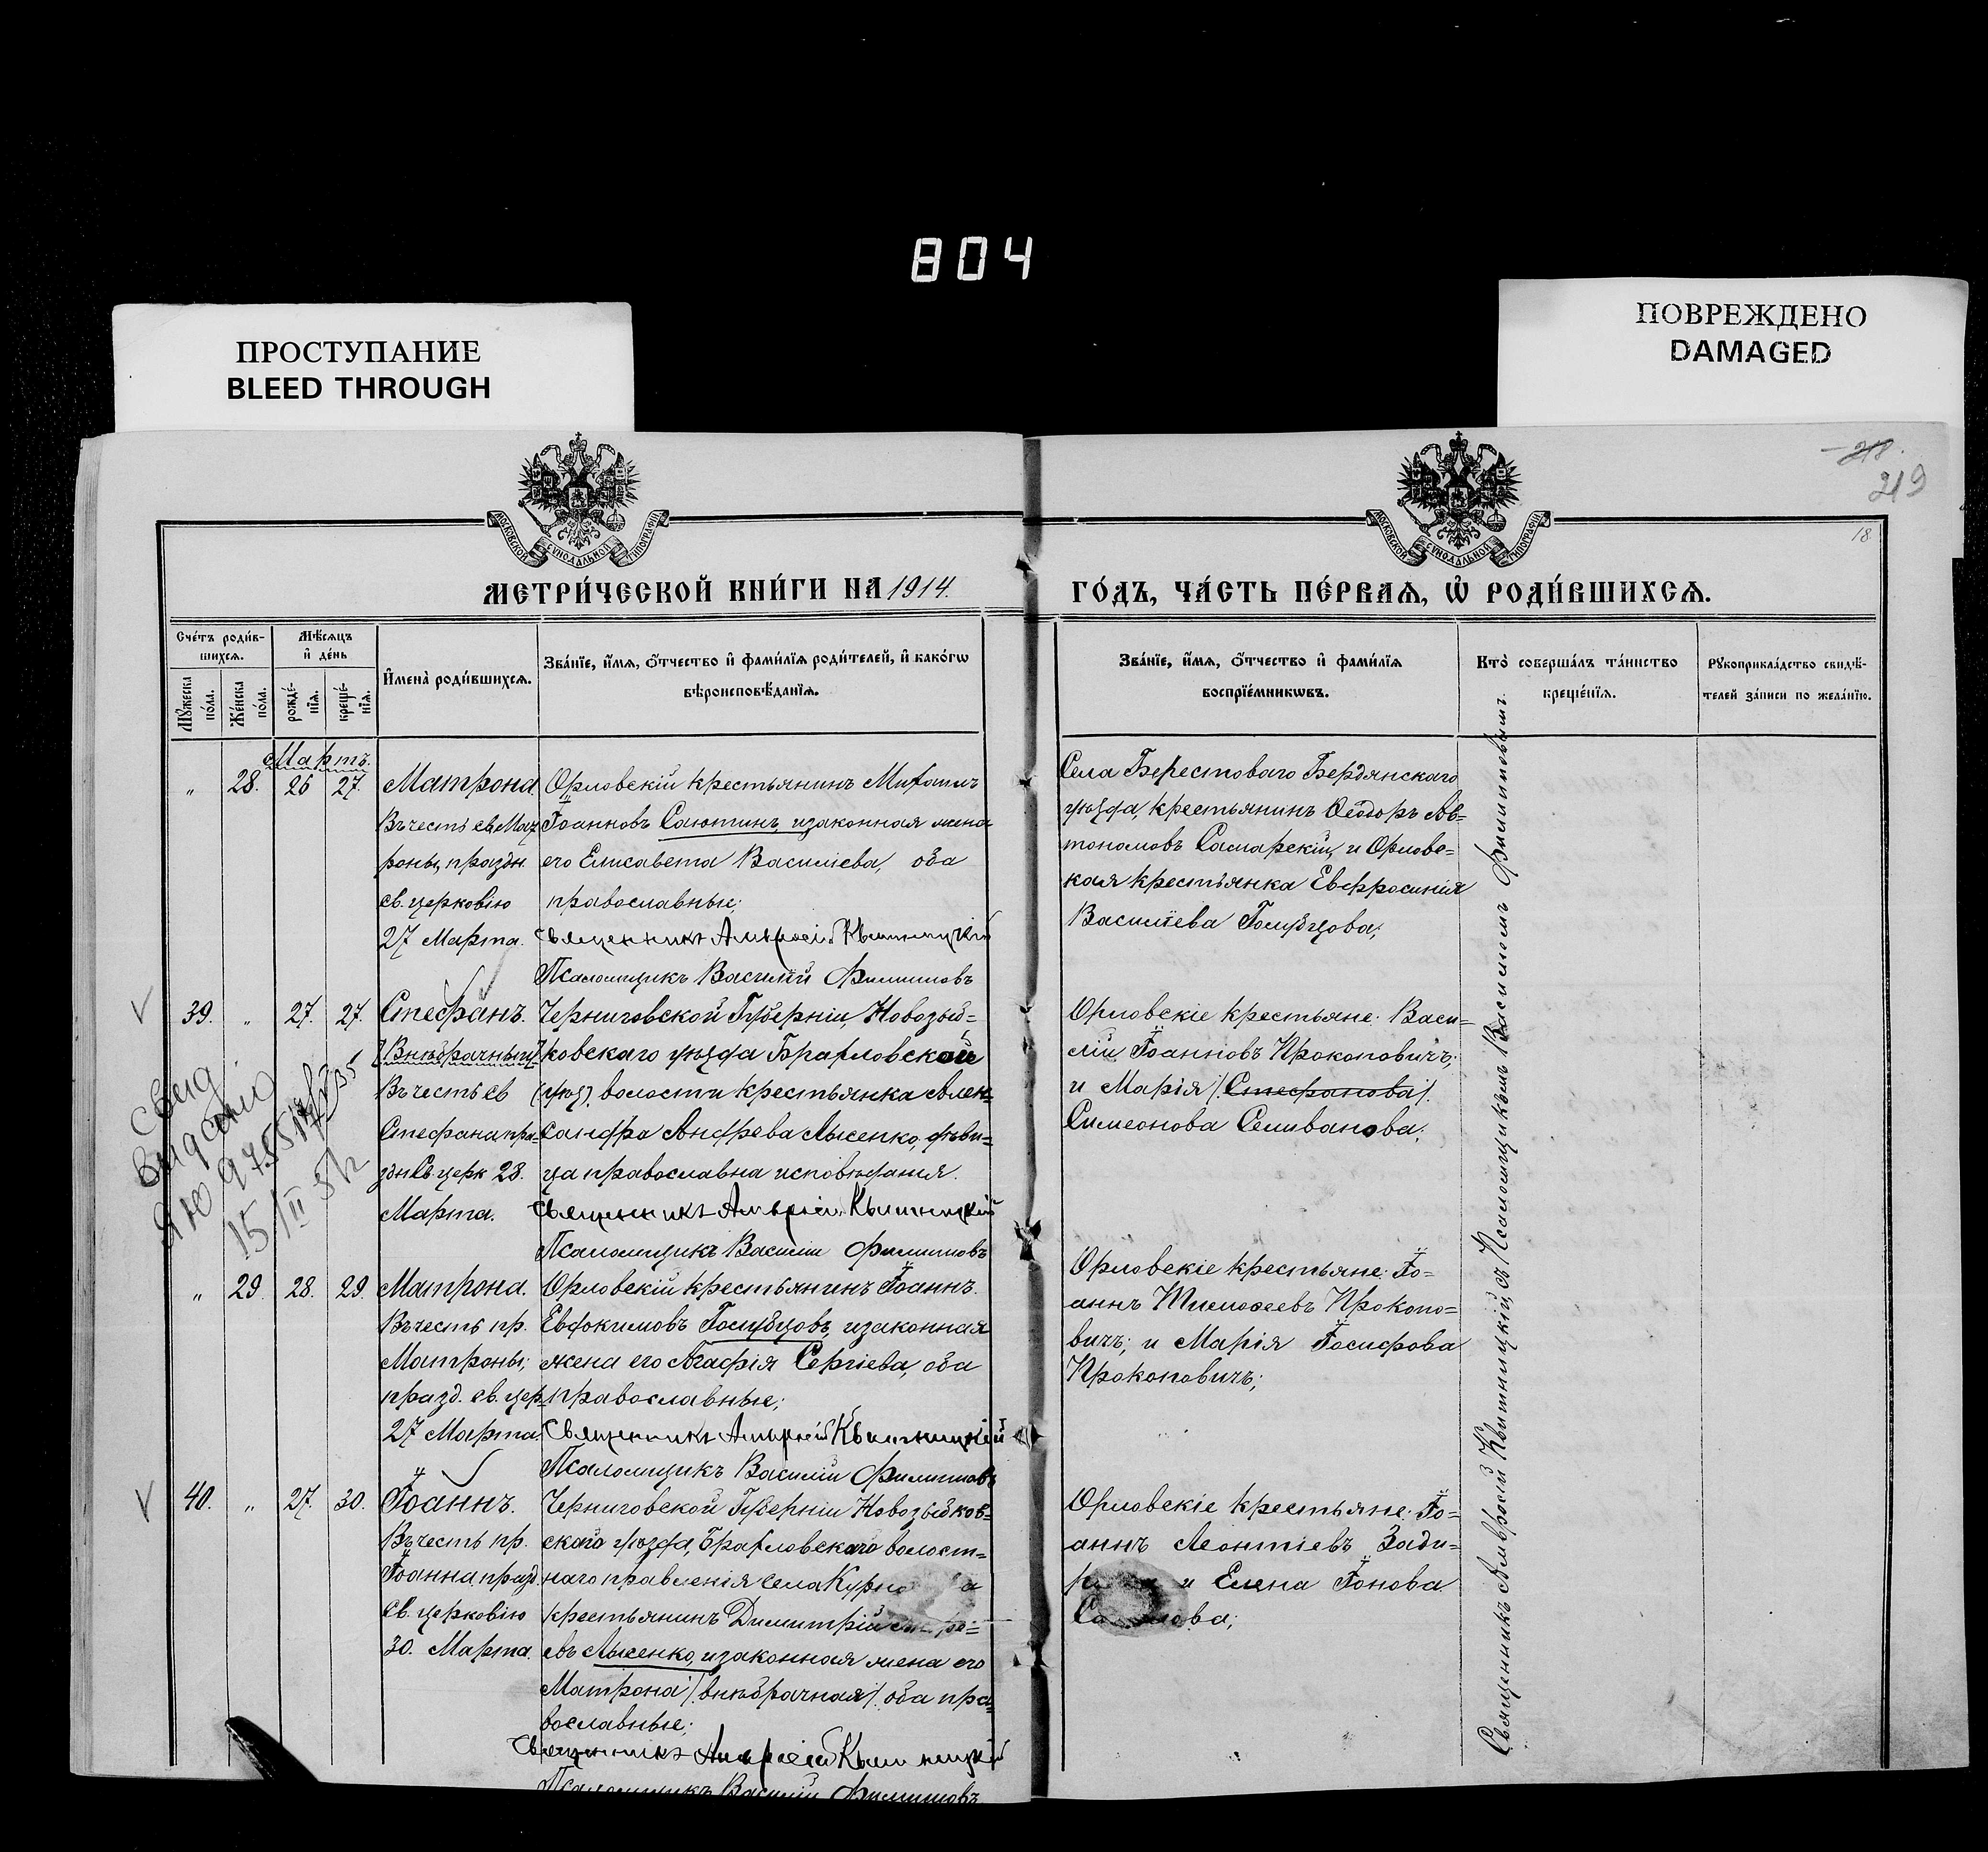 804
ПРОСТУПАНИЕ
BLEED THROUGH
ПОВРЕЖДЕНО
DAMAGED
218.
219
18
МОСКОВСКОЙ СѴНОДАЛЬНОЙ ТИПОГРАФІИ
МОСКОВСКОЙ СѴНОДАЛЬНОЙ ТИПОГРАФІИ
МЕТРИ́ЧЕСКОЙ КНИ́ГИ НА 1914.
ГО́ДЪ, ЧА́СТЬ ПЕ́РВАѦ, Ѡ҆ РОДИ́ВШИХСѦ.
Сче́тъ роди́в-
шихсѧ.
Мѣ́сѧцъ
и҆ де́нь
Мꙋ́жеска по́ла.
Же́нска по́ла.
рожде́-
нїѧ.
креще́-
нїѧ.
И҆мена̀ роди́вшихсѧ.
Зва́нїе, и҆́мѧ, ѻ҆́тчество и҆ фами́лїѧ роди́телей, и҆ како́гѡ
вѣроисповѣ́данїѧ.
Зва́нїе, и҆́мѧ, ѻ҆́тчество и҆ фами́лїѧ
воспрїе́мникѡвъ.
Кто̀ соверша́лъ та́инство
креще́нїѧ.
Рꙋкоприкла́дство свидѣ́-
телей за́писи по жела́нїю.
Мартъ.
„ 28. 26 27. Матрона.
Въ честь св. Мат
роны, праздн.
св. церковію
27 Марта.
Орловскій крестьянинъ
Іоанновъ Саютинъ, и законная жена
его Елисавета Василіева, оба
православные;
Священникъ Амвросій Квитницкій
Псаломщикъ Василій Филипповъ
Села Берестоваго Бердянскаго
уѣзда, крестьянинъ Ѳеодоръ Ав=
тономовъ Самарскій, и Орловс=
кая крестьянка Евфросинія
Василіева Голубцова;
39. „ 27. 27. Стефанъ.
[Внѣбрачный]
Въ честь св
Стефана пра-
здн св. церк 28.
Марта.
Черниговской Губерніи, Новозыб=
ковскаго уѣзда Брахловской
(уѣз). волости крестьянка Алек=
сандра Андреева Лысенко, дѣви=
ца православна исповѣданія.
Священникъ Амвросій Квитницкій
Псаломщикъ Василій Филипповъ
Орловскіе крестьяне: Васи=
лій Іоанновъ Прокоповичъ;
и Марія /.Стефанова/.
Симеонова Селиванова.
„ 29. 28. 29. Матрона.
Въ честь пр.
Матроны;
празд. св. цер.
27 Марта
Орловскій крестьянинъ Іоаннъ
Евдокимовъ Голубцовъ, и законная
жена его Агафія Сергіева, оба
православные;
Священникъ Амвросій Квитницкій
Псаломщикъ Василій Филипповъ
Орловскіе крестьяне: Іо=
аннъ Тимоѳеевъ Прокопо=
вичъ; и Марія Іосифова
Прокоповичъ;
40. „ 27. 30. Іоаннъ.
Въ честь пр.
Іоанна, празд.
св. церковію
30. Марта.
Черниговской Губерніи Новозыбков=
скаго уѣзда, Брахловскаго волост=
наго правленія села
крестьянинъ Димитрій
евъ Лысенко, и законная жена его
Матрона /.внѣбрачная/. оба пра
вославные;
Священникъ Амвросій Квитницкій
Псаломщикъ Василій Филипповъ
Орловскіе крестьяне: Іо=
аннъ Леонтіевъ
и Елена Іонова
Священникъ Амвросій Квитницкій, съ Псаломщикомъ Василіемъ Филипповымъ.
15/II